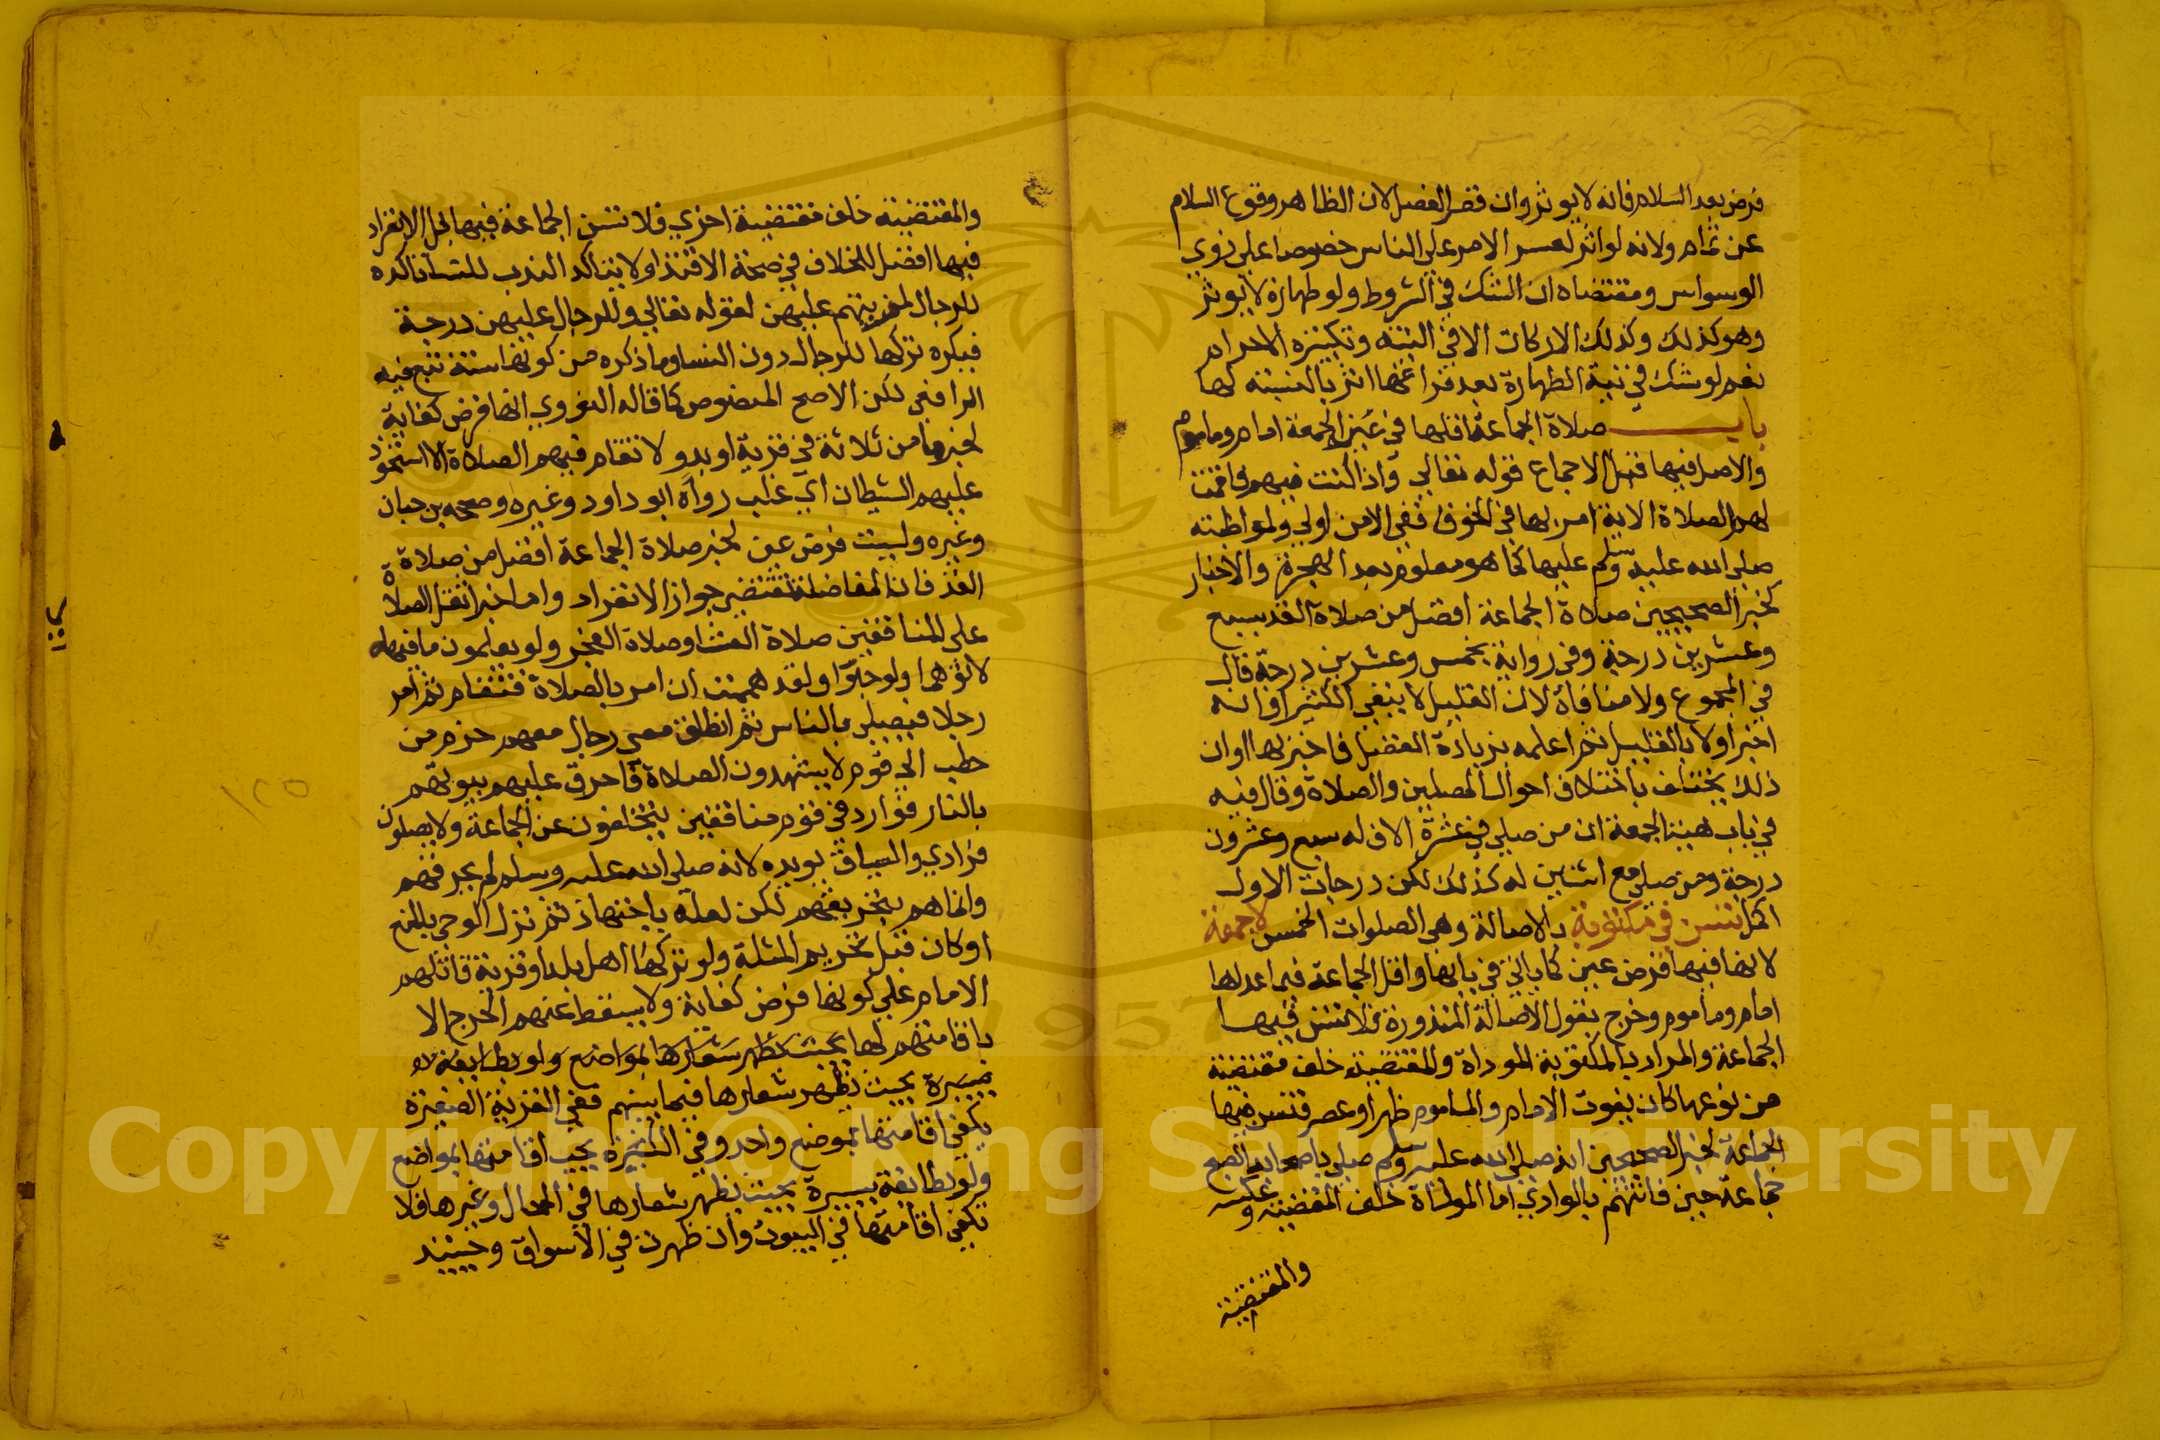 فرض بعد السلام فانه لا يوثر وان قصر الفصل لان الظاهر وقوع السلام
عن تمام ولانه لو اثر لعسر الامر على الناس خصوصا على ذوي
الوسواس ومقتضاه ان الشك في الشروط ولو طهارة لا يوثر
وهو كذلك وكذلك الاركان الا في النية وتكبيرة الاحرام
نعم لو شك في نية الطهارة بعد فراغها اثر بالنسبة لها
باب صلاة الجماعة اقلها في غير الجمعة امام وماموم
والاصل فيها قبل الاجماع قوله تعالى واذا كنت فيهم فاقمت
لهم الصلاة الاية امر بها في الخوف ففي الامن اولى ولمواظبته
صلى الله عليه وسلم عليها كما هو معلوم بعد الهجرة والاخبار
كخبر الصحيحين صلاة الجماعة افضل من صلاة الفذ بسبع
وعشرين درجة وفي رواية بخمس وعشرين درجة قال
في المجموع ولا منافاة لان القليل لا ينفي الكثير او انه
اخبر اولا بالقليل ثم اعلمه بزيادة الفضل فاخبر بها او ان
ذلك يختلف باختلاف احوال المصلين والصلاة وقال فيه
في باب هيئة الجمعة ان من صلى في عشرة الاف له سبع وعشرون
درجة ومن صلى مع اثنين له كذلك لكن درجات الاول
اكمل تسن في مكتوبة بالاصالة وهي الصلوات الخمس لا جمعة
لانها فيها فرض عين كما ياتي في بابها واقل الجماعة فيما عداها
امام وماموم وخرج بقول الاصالة المنذورة فلا تسن فيها
الجماعة والمراد بالمكتوبة الموداة والمقضية خلف مقضية
من نوعها كان يفوت الامام والماموم ظهر او عصر فتسن فيها
الجماعة لخبر الصحيحين انه صلى الله عليه وسلم صلى باصحابه الصبح
جماعة حين فاتتهم بالوادي اما الموداة خلف المقضية وعكسه
والمقضية
والمقضية خلف مقضية اخري فلا تسن الجماعة فيها بل الانفراد
فيها افضل للخلاف في صحة الاقتدا ولا يتاكد الندب للنسا تاكده
للرجال لمزيتهم عليهن لقوله تعالى وللرجال عليهن درجة
فيكره تركها للرجال دون النسا وما ذكره من كونها سنة تبع فيه
الرافعي لكن الاصح المنصوص كما قاله النووي انها فرض كفاية
لخبر ما من ثلاثة في قرية او بدو لا تقام فيهم الصلاة الا استحوذ
عليهم الشيطان اي غلب رواه ابو داود وغيره وصححه بن حبان
وغيره وليست فرض عين لخبر صلاة الجماعة افضل من صلاة
الفذ فان المفاضلة تقتضي جواز الانفراد واما خبر اثقل الصلاة
على المنافقين صلاة العشا وصلاة الفجر ولو يعلمون ما فيهما
لاتوهما ولو حبوا ولقد هممت ان امر بالصلاة فتقام ثم امر
رجلا فيصلي بالناس ثم انطلق معي رجال معهم حزم من
حطب الى قوم لا يشهدون الصلاة فاحرق عليهم بيوتهم
بالنار فوارد في قوم منافقين يتخلفون عن الجماعة ولا يصلون
فرادي والسياق يويده لانه صلى الله عليه وسلم لم يحرقهم
وانما هم بتحريقهم لكن لعله باجتهاد ثم نزل الوحي بالمنع
او كان قبل تحريم المثلة ولو تركها اهل بلد او قرية قاتلهم
الامام على كونها فرض كفاية ولا يسقط عنهم الحرج الا
باقامتهم لها بحيث تظهر شعارها بمواضع ولو بطايفة
يسيرة بحيث يظهر شعارها فيما بينهم ففي القرية الصغيرة
يكفي اقامتها بموضع واحد وفي الكبيرة يجب اقامتها بمواضع
ولو بطائفة يسيرة بحيث يظهر شعارها في المحال وغيرها فلا
تكفي اقامتها في البيوت وان ظهرت في الاسواق وحينيذ
١٢٥
Copyright © King Saud University
1957